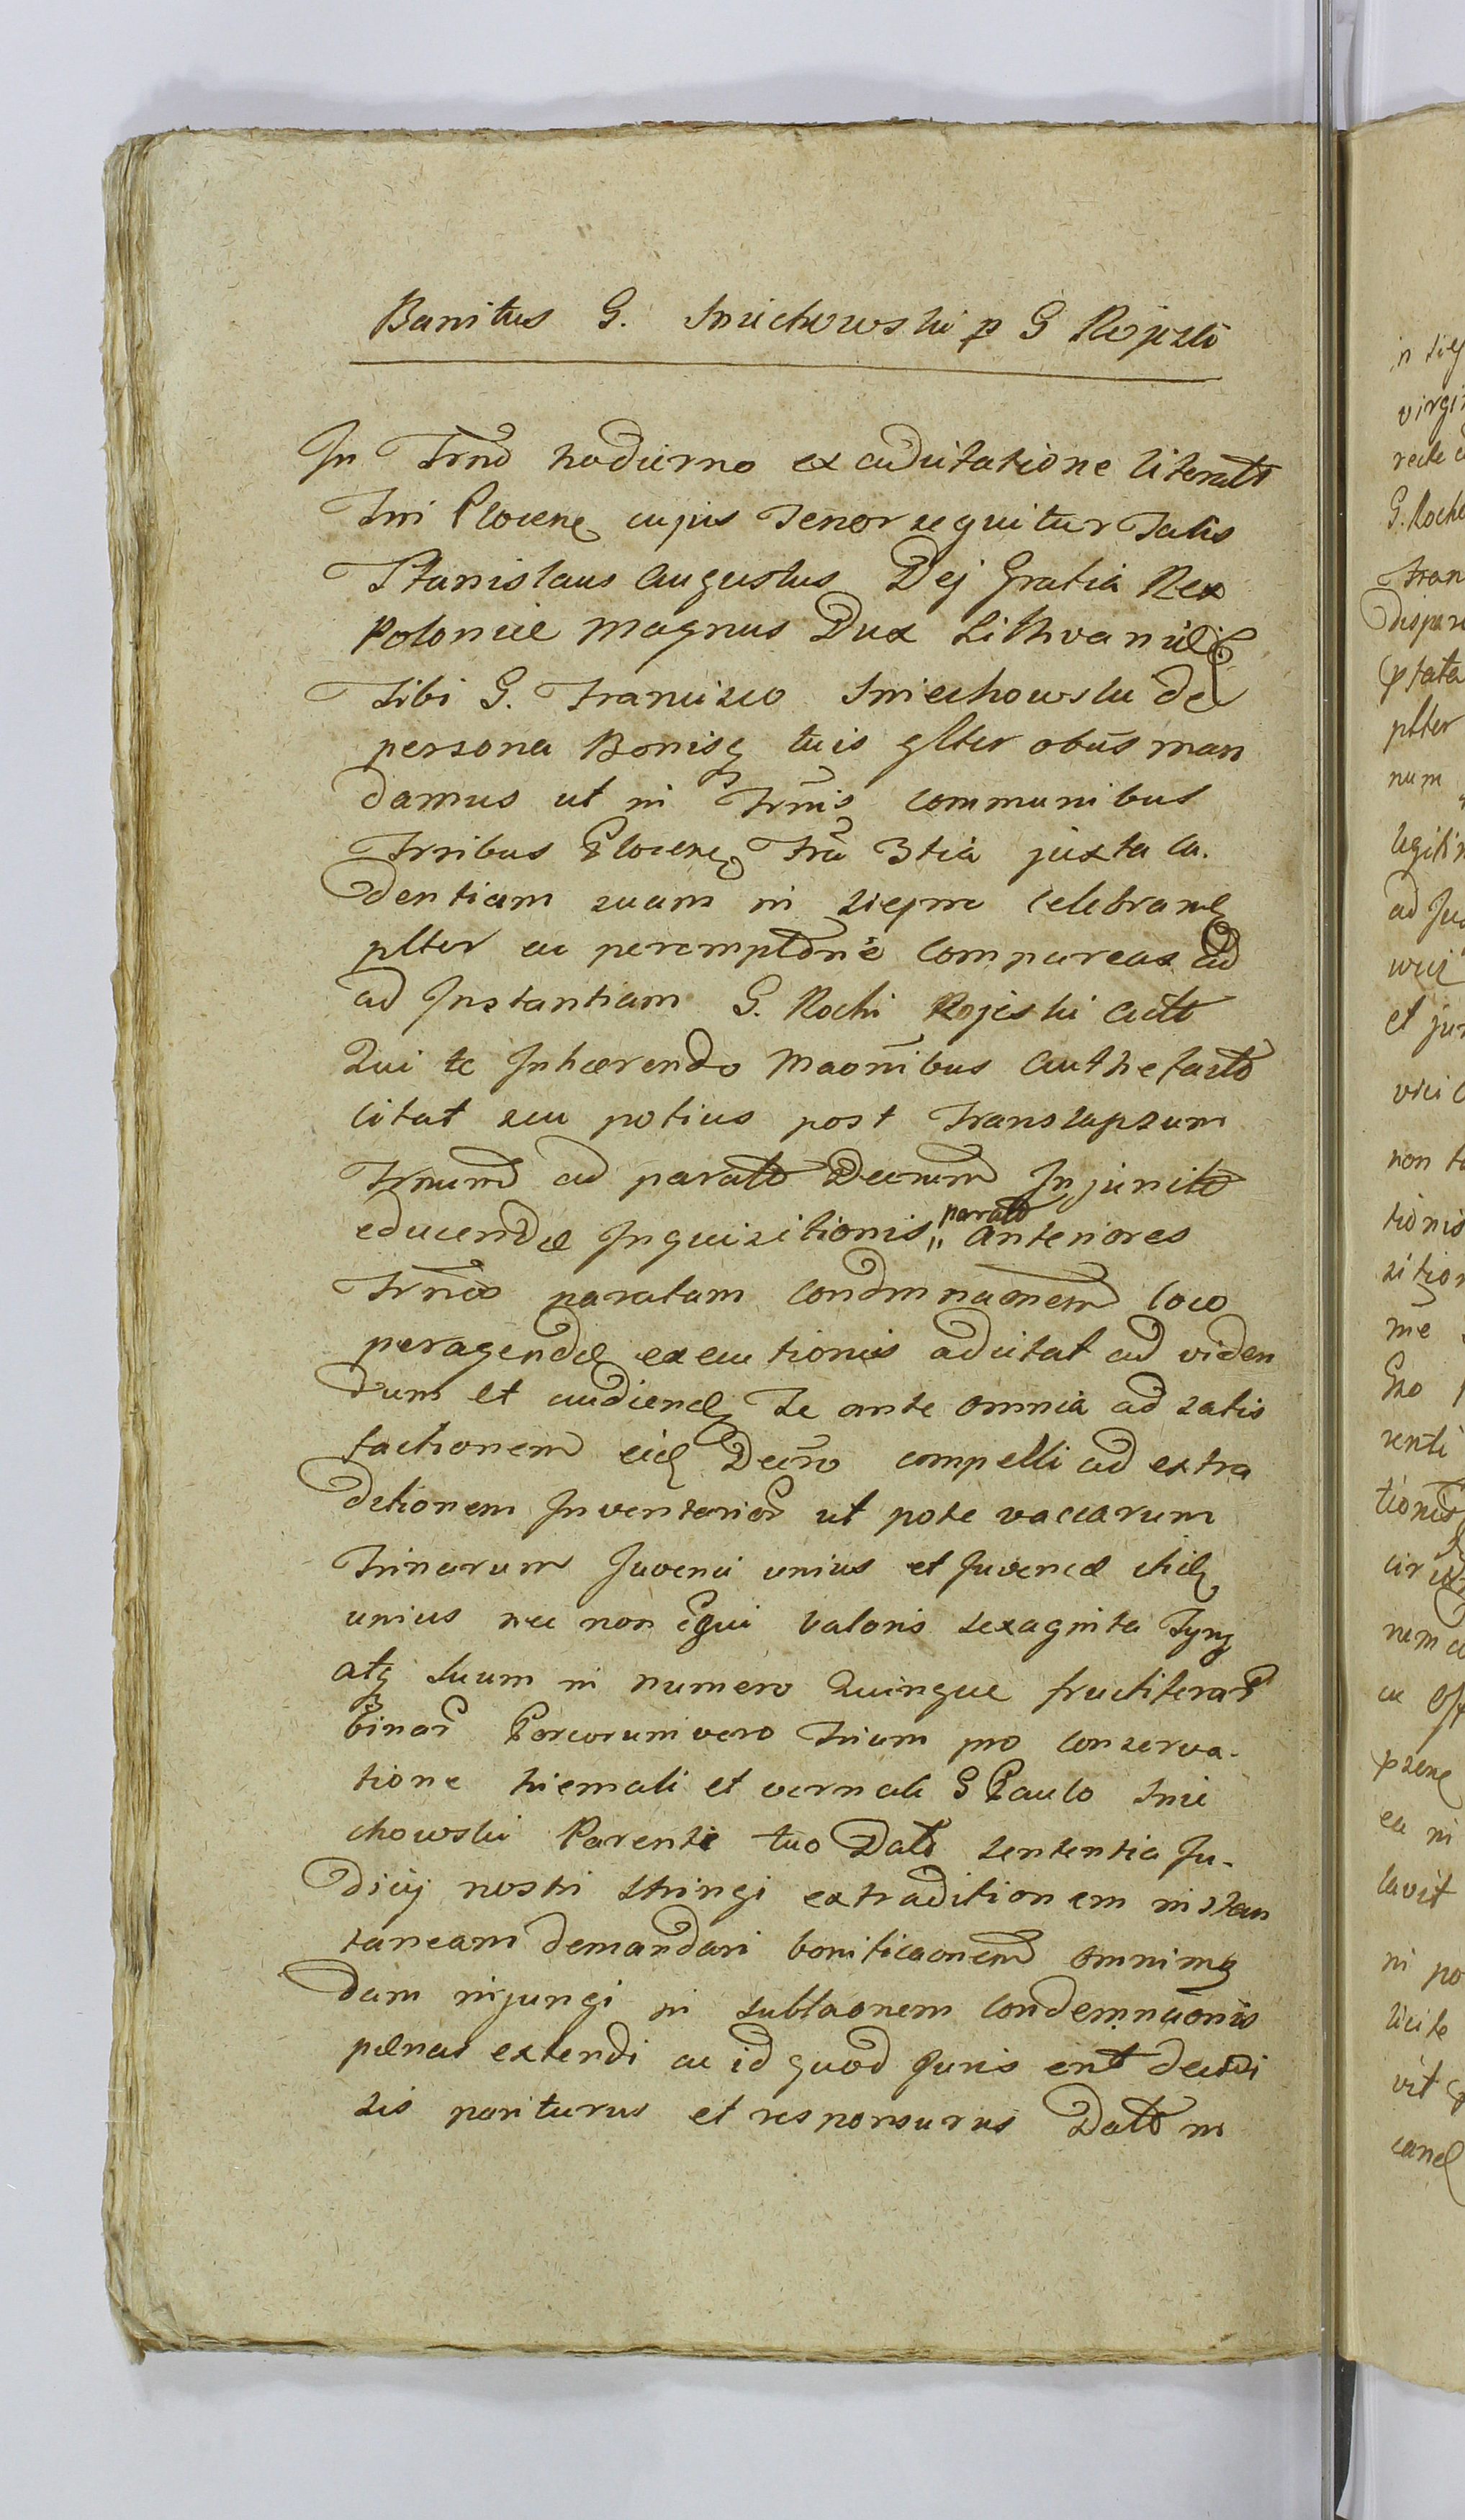 Banitus G. Smiechowski p G Rojeski
In Trno hodierno ex adcitatione literali
Tri Plocen cujus Tenor sequitur Talis
Stanislaus Augustus Dej Gratia Rex
Poloniæ Magnus Dux Lithvaniæ &
Tibi G. Francisco Smiechowski de
persona Bonisq tuis glter obūs man
damus ut in Trnis communibus
Trribus Plocen Tra 3tia juxta ca.
dentiam suam in Sierpc celebran
plter ac peremptorie compareas ad
ad Instantiam G. Rochi Rojeski Actt
Qui te Inhærendo Maonibus Authe factt
citat seu potius post Translapsum
Trnum ad paratt Decrum Injunctt
educendæ Inquisitionis „ paratt anteriores
Trnos paratam Condmnaonem loco
peragendæ executionis adcitat ad viden
dum et audiend Te ante omnia ad satis
factionem eid Decro compelli ad extra
ditionem Inventarior ut pote vaccarum
Trinarum Juvenci unius et Juvencæ itid
unius nec non Equi valoris sexaginta Tynf
atq suum in numero Quinque fructiferar
binar Porcorum vero Trium pro conserva-
tione hiemali et vernali G Paulo Smie
chowski Parenti tuo Datt sententia Ju-
dicij nostri stringi extraditionem instan
taneam demandari bonificaonem omnimo
dam injungi in sublaonem condemnaonis
pænas extendi ac id quod Juris erit decidi
sis pariturus et responsurus Datt in